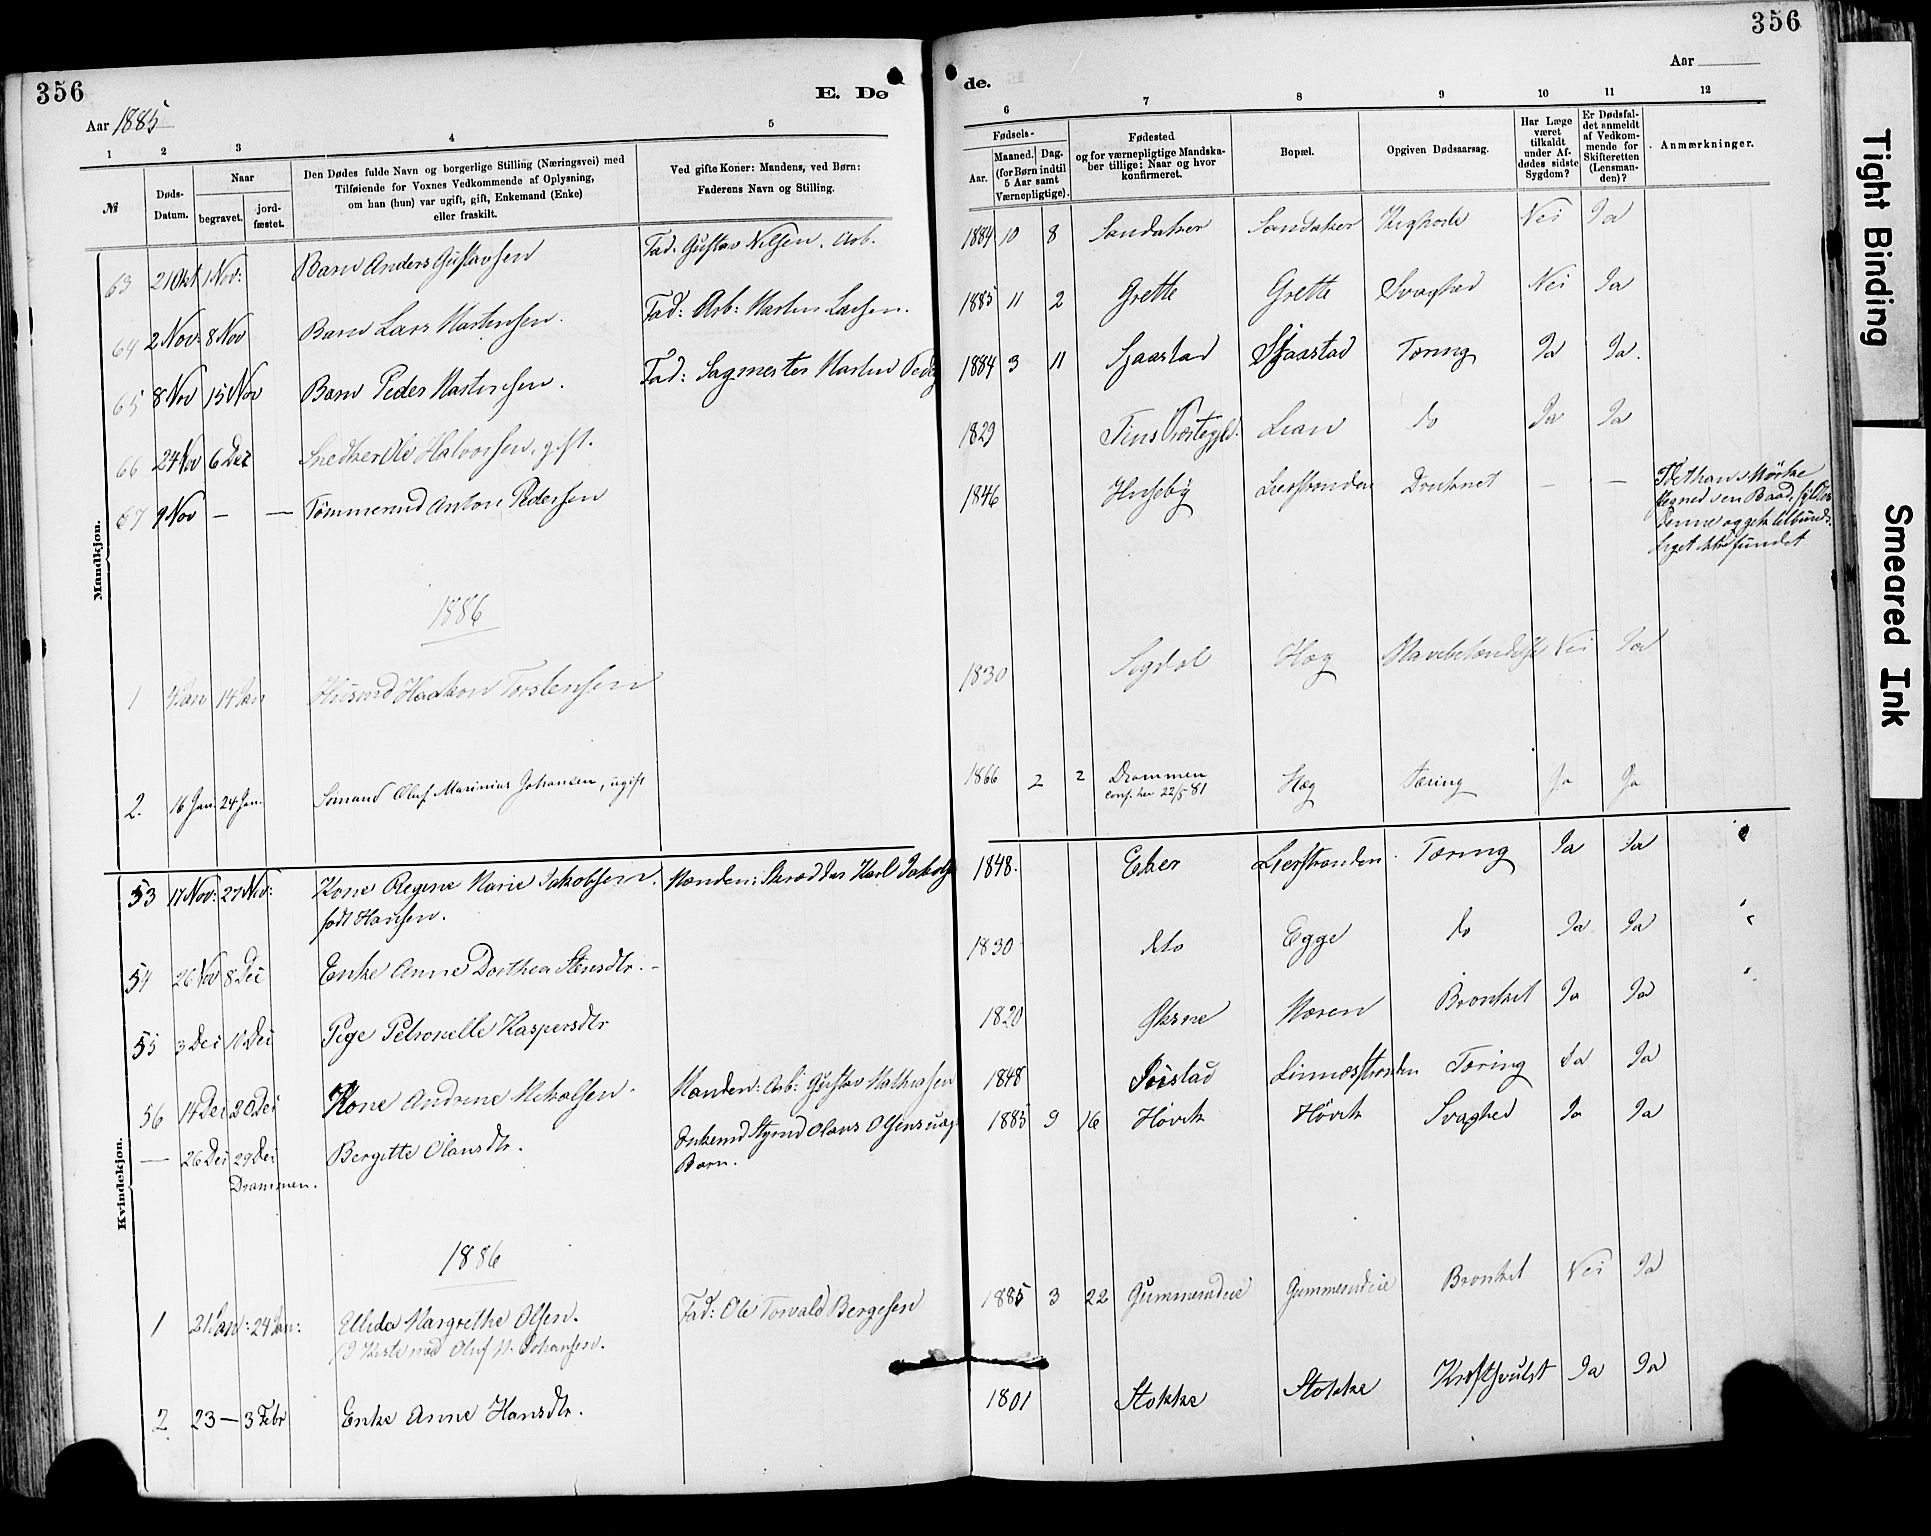 356
Aar 1885
E. Dø
1 2 3 4 5
№
Døds-
Datum.
Naar
begravet.
jord-
fæstet.
Den Dødes fulde Navn og borgerlige Stilling (Næringsvei) med
Tilføiende for Voxnes Vedkommende af Oplysning,
om han (hun) var ugift, gift, Enkemand (Enke)
eller fraskilt.
Ved gifte Koner: Mandens, ved Børn:
Faderens Navn og Stilling.
Mandkjøn.
63 21 Okt 1 Nov: Barn Anders Gustavsen Fad. Gustav Nilsen. Arb.
64 2 Nov: 8 Nov Barn Lars Martinsen. Fad: Arb: Martin Larsen.
65 8 Nov 15 Nov Barn Peder Martinsen. Fad: Sagmester Martin
66 24 Nov 6 Dec Snedker Ole Halvorsen, gift.
67 9 Nov — — Tømmermd Anton Pedersen
1886
1 4 Jan 14 Jan Husmd Haakon Torstensen
2. 16 Jan. 24 Jan. Sømand Oluf Marinius Johansen, ugift
Kvindekjøn.
53 17 Nov: 27 Nov: Kone Regine Marie Jakobsen. Manden: Skrædder Karl
født Hansen.
54 26 Nov 8 Dec Enke Anne Dorthea Stensdtr. –
55 3 Dec 10 Dec Pige Petronelle Kaspersdtr
56 14 Dec 20 Dec Kone Andrine Nikolsen. Manden: Arb: Gustav Mathisen
— 26 Dec 29 Dec Bergitte Olausdtr. Enkemd Styrmd Olaus Olsens uægt
Drammen. Barn.
1886
1 21 Jan: 24 Jan: Ellida Margrethe Olsen. Fad: Ole Torvald Bergesen
Oluf M. Johansen.
2. 23 — 3 Febr Enke Anne Hansdtr.
356
Aar
de.
6 7 8 9 10 11 12
Fødsels-
Aar.
Maaned. Dag.
(for Børn indtil
5 Aar samt
Værnepligtige).
Fødested
og for værnepligtige Mandska-
ber tillige: Naar og hvor
konfirmeret.
Bopæl.
Opgiven Dødsaarsag.
Har Læge
været
tilkaldt
under Af-
dødes sidste
Sygdom?
Er Dødsfal-
det anmeldt
af Vedkom-
mende for
Skifteretten
(Lensman-
den)?
Anmærkninger.
1884 10 8 Sandaker Sandaker Kighoste Nei Ja
1885 11 2 Grette Grette Svaghed Nei Ja
1884 3 11 Gjaastad Gjaastad Tæring Ja Ja.
1829 Tins Præstegjld. Lian do Ja Ja
1846 Huseby Lierstranden Druknet — —
denne og gik tilbunds.
Liget ikke fundet
1830 Sigdal Hæg Nei Ja
1866 2 2 Drammen Hæg Tæring Ja Ja
conf. her 22/5 81
1848. Eker Lierstranden. Tæring Ja Ja
1830 dto Egge do Ja Ja
1820 Øksne Moren Bronkit Ja Ja
1848 Linnæsstranden Tæring Ja Ja
1885 9 16 Høvik Høvik Svaghed Ja Ja
1885 3 22 Gummerudeie Gummerudeie Bronkit Nei Ja
1801 Stokke Stokke Kræftsvulst Ja Ja
Tight Binding
Smeared Ink